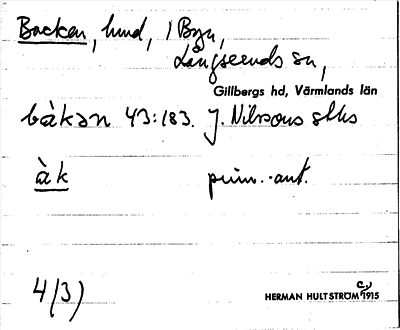 Backen, lund, i Byn,
Långseruds sn,
Gillbergs hd, Värmlands län
bàkan 43:183. J. Nilssons
àk prim.-ant.
4(3) HERMAN HULTSTRÖM 1915